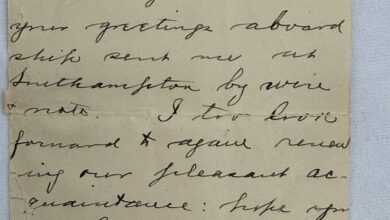 your greetings aboard
ship sent me at
Southampton by wire
& note. I too look
forward to again renew
ing our pleasant ac-
quaintance: hope you